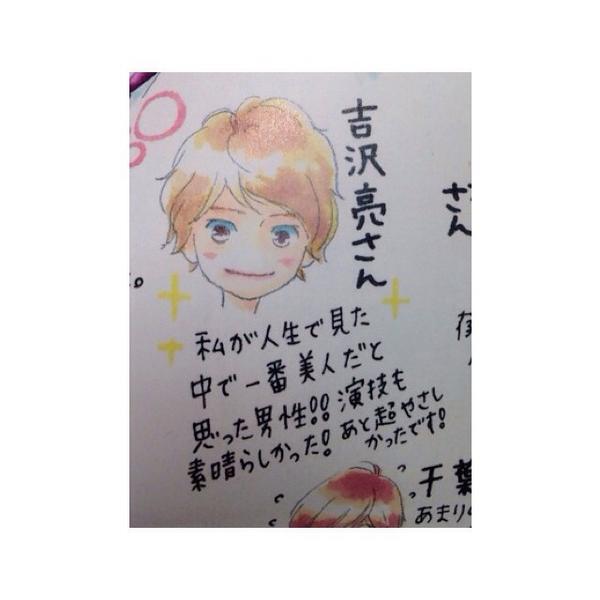 吉沢亮さん
私が人生で見た
中で一番美人だと
思った男性!! 演技も
素晴らしかった! あと超やさし
かったです!
さん
千葉
あまり